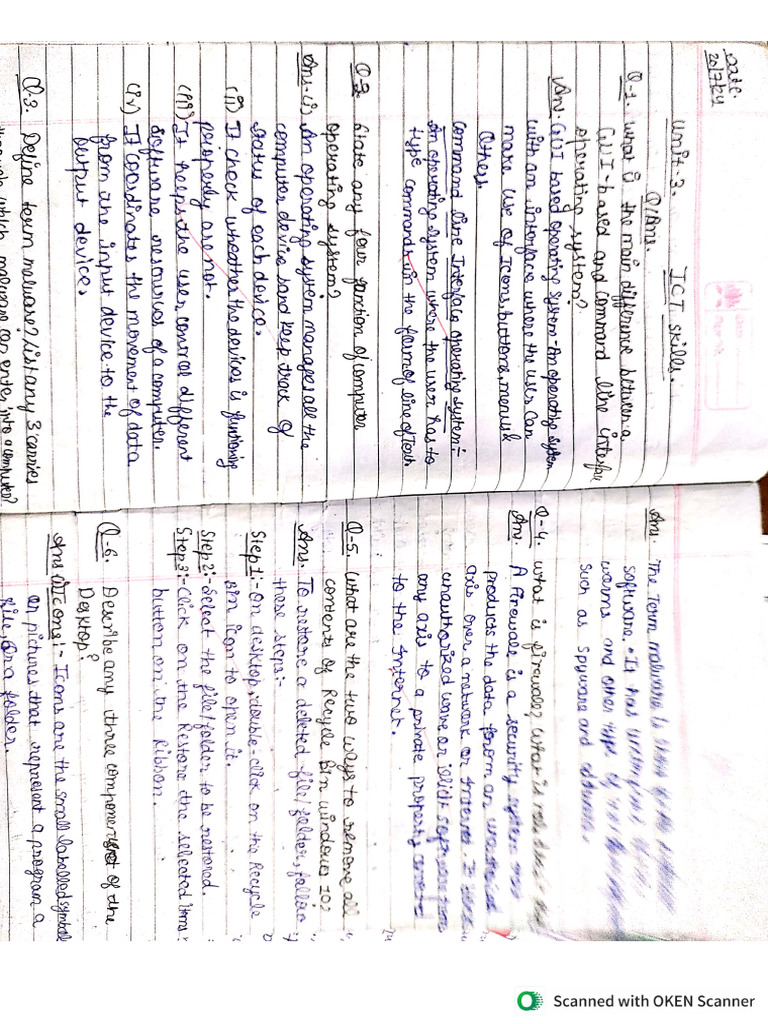 Date:
20/7/24
Unit-3. ICT skills.
Q/Ans.
Q-1. What is the main difference between a
GUI-based and command line interface
operating system?
Ans:- GUI based operating system-An operating system
with an interface where the user can
make use of Icons, buttons, menus &
Others.
Command line Interface operating system:-
An operating system where the user has to
type commands in the form of line of Text.
Q-2. State any four function of computer
operating system?
Ans.(i) An operating system manages all the
computer device s and keep track of
status of each device.
(ii) It check wheather the devices is functioning
properly are not.
(iii) It helps the user, control different
software resources of a computer.
(iv) It coordinates the movement of data
from the input device to the
output device.
Q.3. Define term malware? List any 3 carries
through which malware can enter into a computer?
Ans. The Term malware is
software. It has
worms and other type of
such as spyware and
Q-4. What is firewall? What is
Ans. A firewall is a security system
the data from an
axis over a network or Internet. It
unauthorized
any axis to a private property
to the Internet.
Q-5. What are the two ways to remove all
contents of Recycle Bin windows 10?
Ans. To restore a deleted file/folder, follow
these steps:-
Step 1:- On desktop, double-click on the Recycle
Bin icon to open it.
Step 2:- Select the file/folder to be restored.
Step 3:- Click on the Restore the selected Items
button on the Ribbon.
Q-6. Describe any three component of the
Desktop?
Ans (i) Icons:- Icons are the small labelled symbol
or pictures that represent a program a
file, or a folder.
Scanned with OKEN Scanner